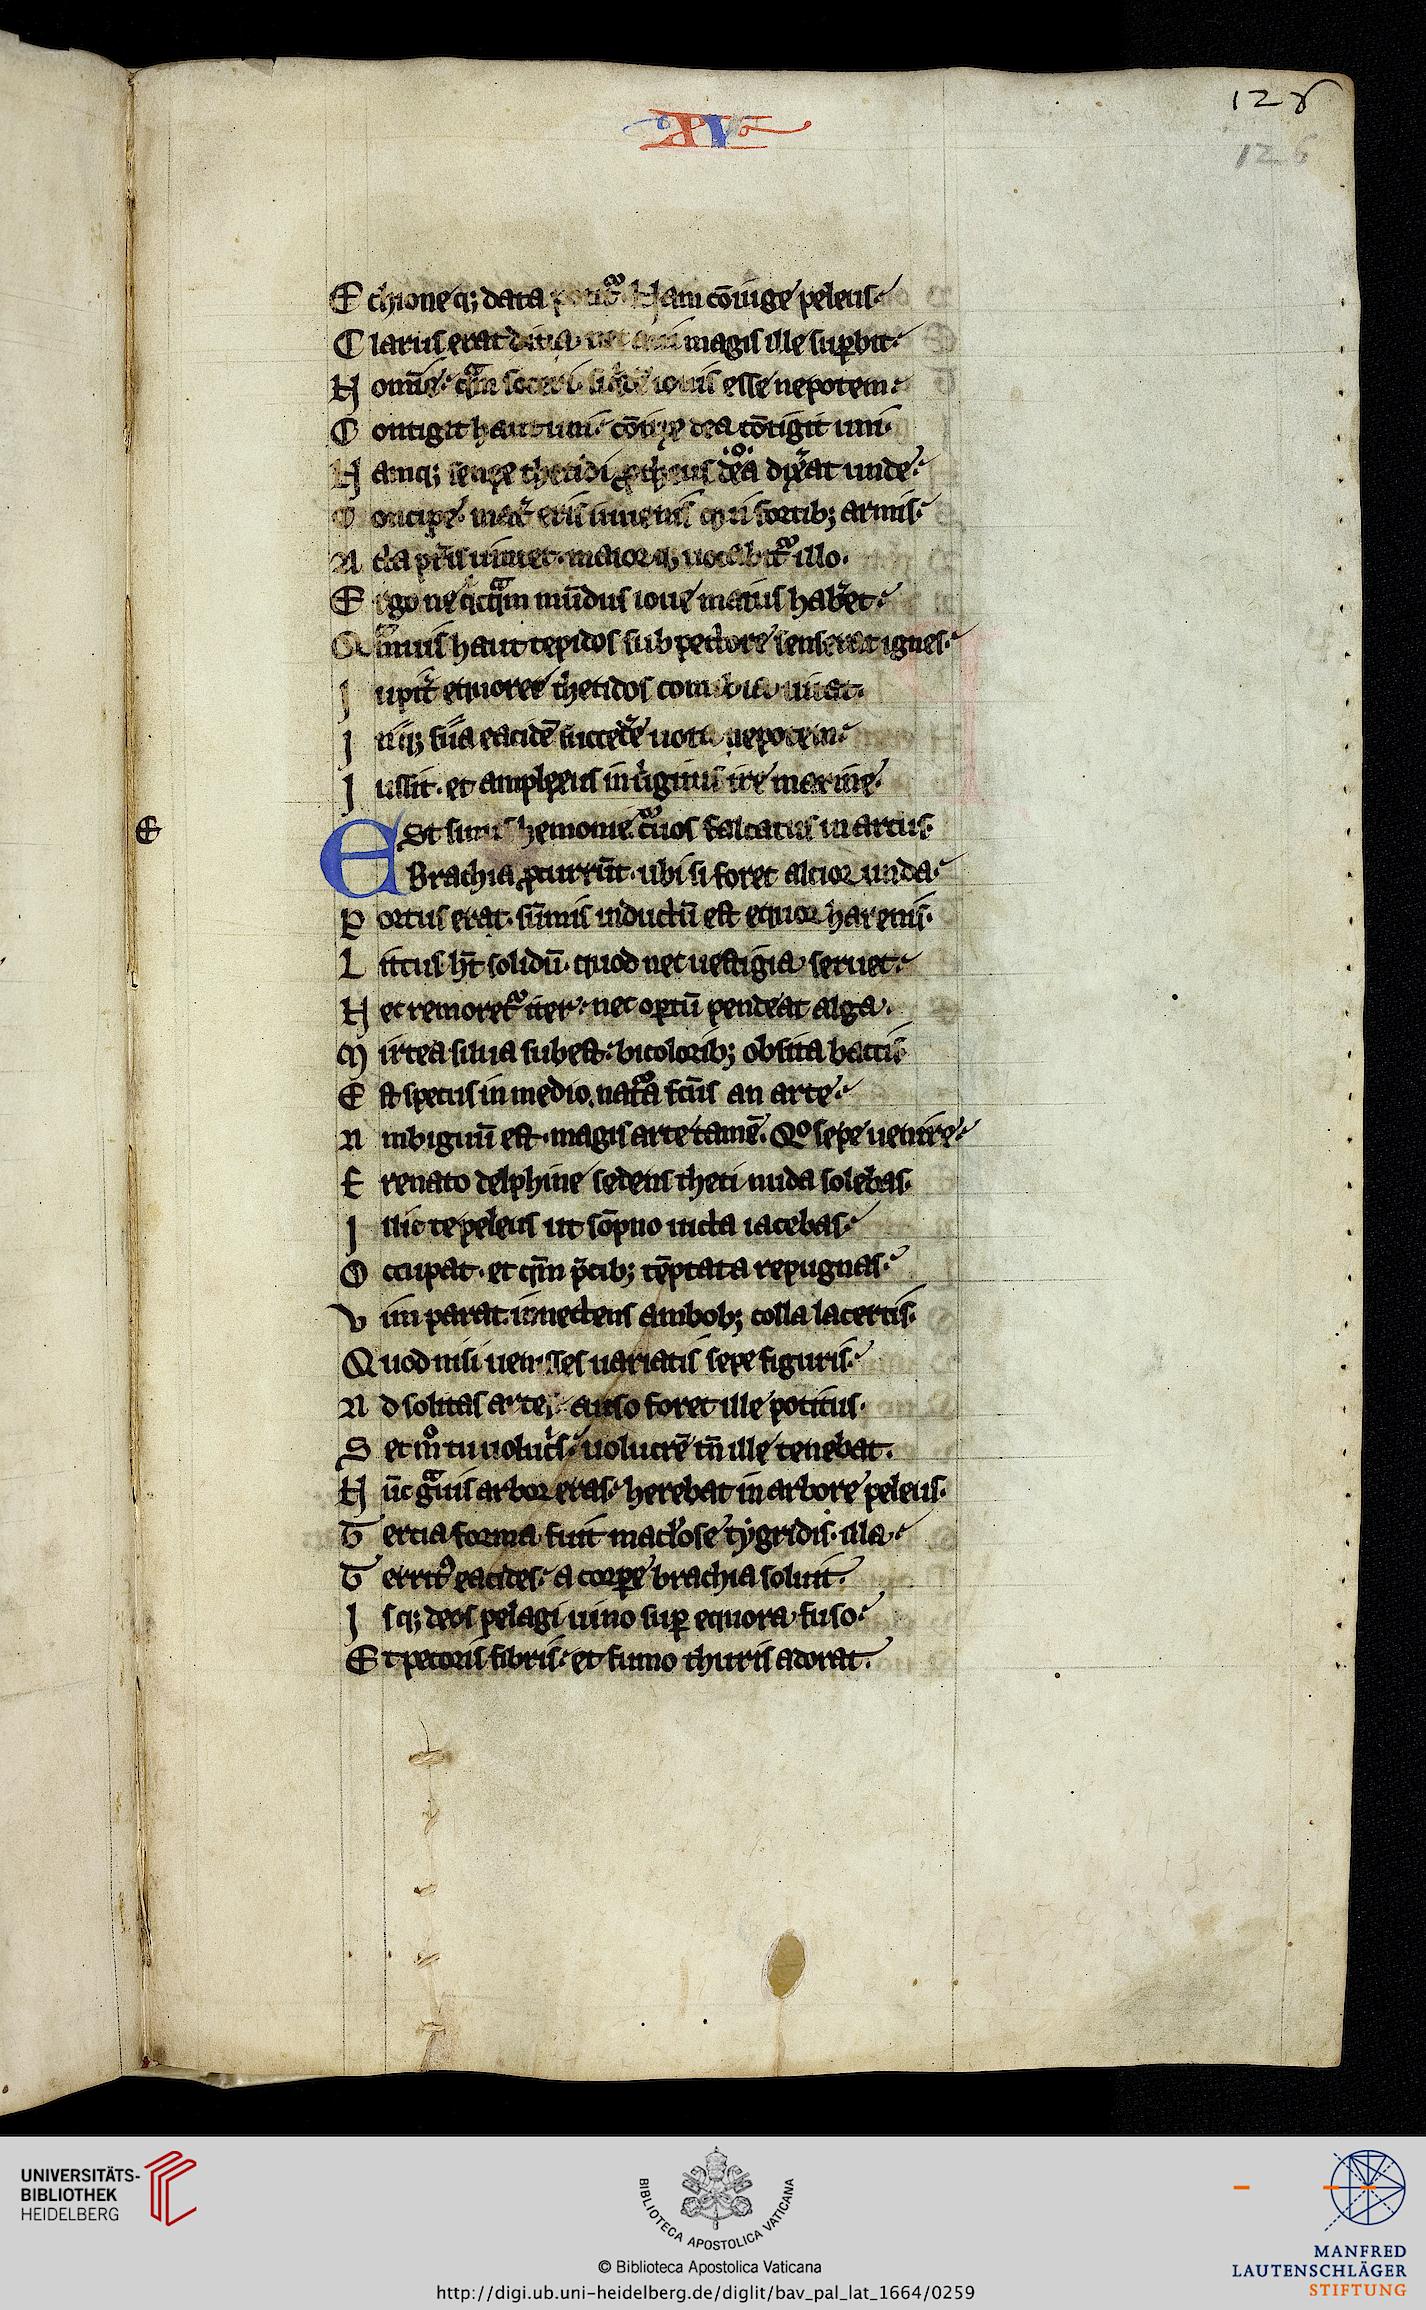 XV
128
126
E chioneq; data potit᷑. Nam cōiuge peleus
C larus erat diua. nec aui magis ille suꝑbit
N omīe. qͣm soceri. siqͥdē iouis esse nepotem
C ontigit haut uni. cōiūx dea cōtigit uni.
N amq; senex thetidi ꝓtheus dea dix̾at unde
C oncipe. mat̾ eris iuuenis qui fortib; armis
A cta pr̄is uincet. maiorq; uocabit᷑ illo.
E rgo ne qͥcqͣm mūdus ioue maius hab̾et
Qͣmuis haut tepidos sub pectore senserat ignes
I upit̾ equoree thetidos conubia uitat.
I nq; sua eacidē succed̾e uota nepotem
I ussit. et amplexus in uͥginis ire marine
E
ESt sinus hemonie. c᷑uos falcatus in arcus
Brachia ꝓcurrūt. ubi si foret altior unda
P ortus erat. sūmis inductū est equor harenis.
L ittus hꝫ solidū. quod nec uestigia seruet
N ec remoret᷑ iter. nec opertū pendeat alga.
M irtea silua subest. bicolorib; obsita baccis
E st specus in medio. nat᷑a fc̄us an arte
A mbiguū est. magis arte tamē. Qͦ sepe uenire
F renato delphine sedens theti nuda solebas.
I llic te peleus ut sōpno uicta iacebas
O ccupat. et qm̄ p̾cib; tēptata repugnas
V im parat. innectens ambob; colla lacertis.
Quod nisi uenisses uariatis sepe figuris
A d solitas artes auso foret ille potitus.
S et mͦ tu uolucͥs. uolucrē tn̄ ille tenebat.
N ūc gͣuis arbor eras. herebat in arbore peleus.
T ercia forma fuit maculose tygridis. illa
T errit̾ eacides. a corꝑe brachia soluit.
I sq; deos pelagi uino suꝑ equora fuso
E t pecoris fibris. et fumo thuris adorat.
UNIVERSITÄTS-
BIBLIOTHEK
HEIDELBERG
BIBLIOTECA APOSTOLICA VATICANA
© Biblioteca Apostolica Vaticana
http://digi.ub.uni-heidelberg.de/diglit/bav_pal_lat_1664/0259
MANFRED
LAUTENSCHLÄGER
STIFTUNG